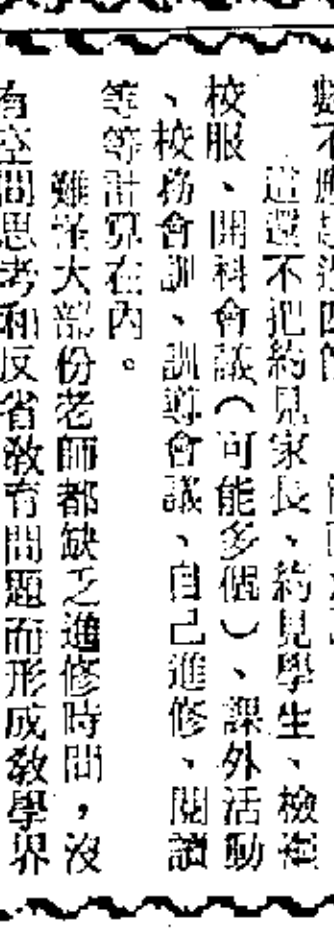 這還不把約見家長、約見學生、檢查
校服、開科會議（可能多個）、課外活動
、校務會訓、訓導會議、自己進修、閱讀
等等計算在內。
難怪大部份老師都缺乏進修時間，沒
有空間思考和反省教育問題而形成教學界